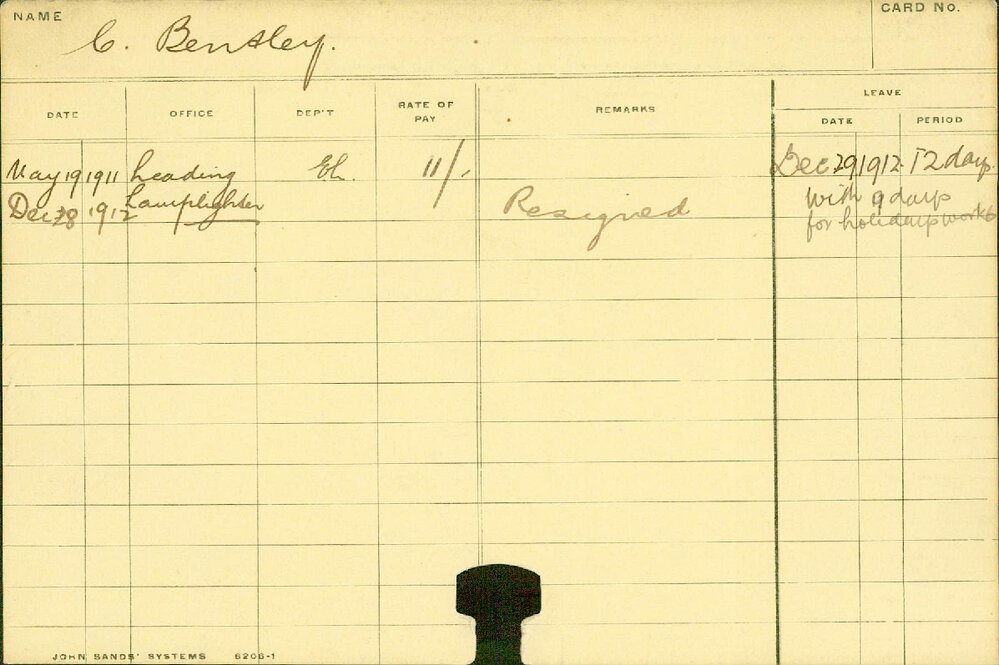 NAME
C. Bentley.
CARD NO.
DATE OFFICE DEP'T RATE OF PAY REMARKS LEAVE
DATE PERIOD
May 19 1911 Leading 11/- Dec 29 1912 12 days
Dec 28 1912 Lamplighter Resigned with 9 days
for holidays worked
JOHN SANDS' SYSTEMS 6206-1